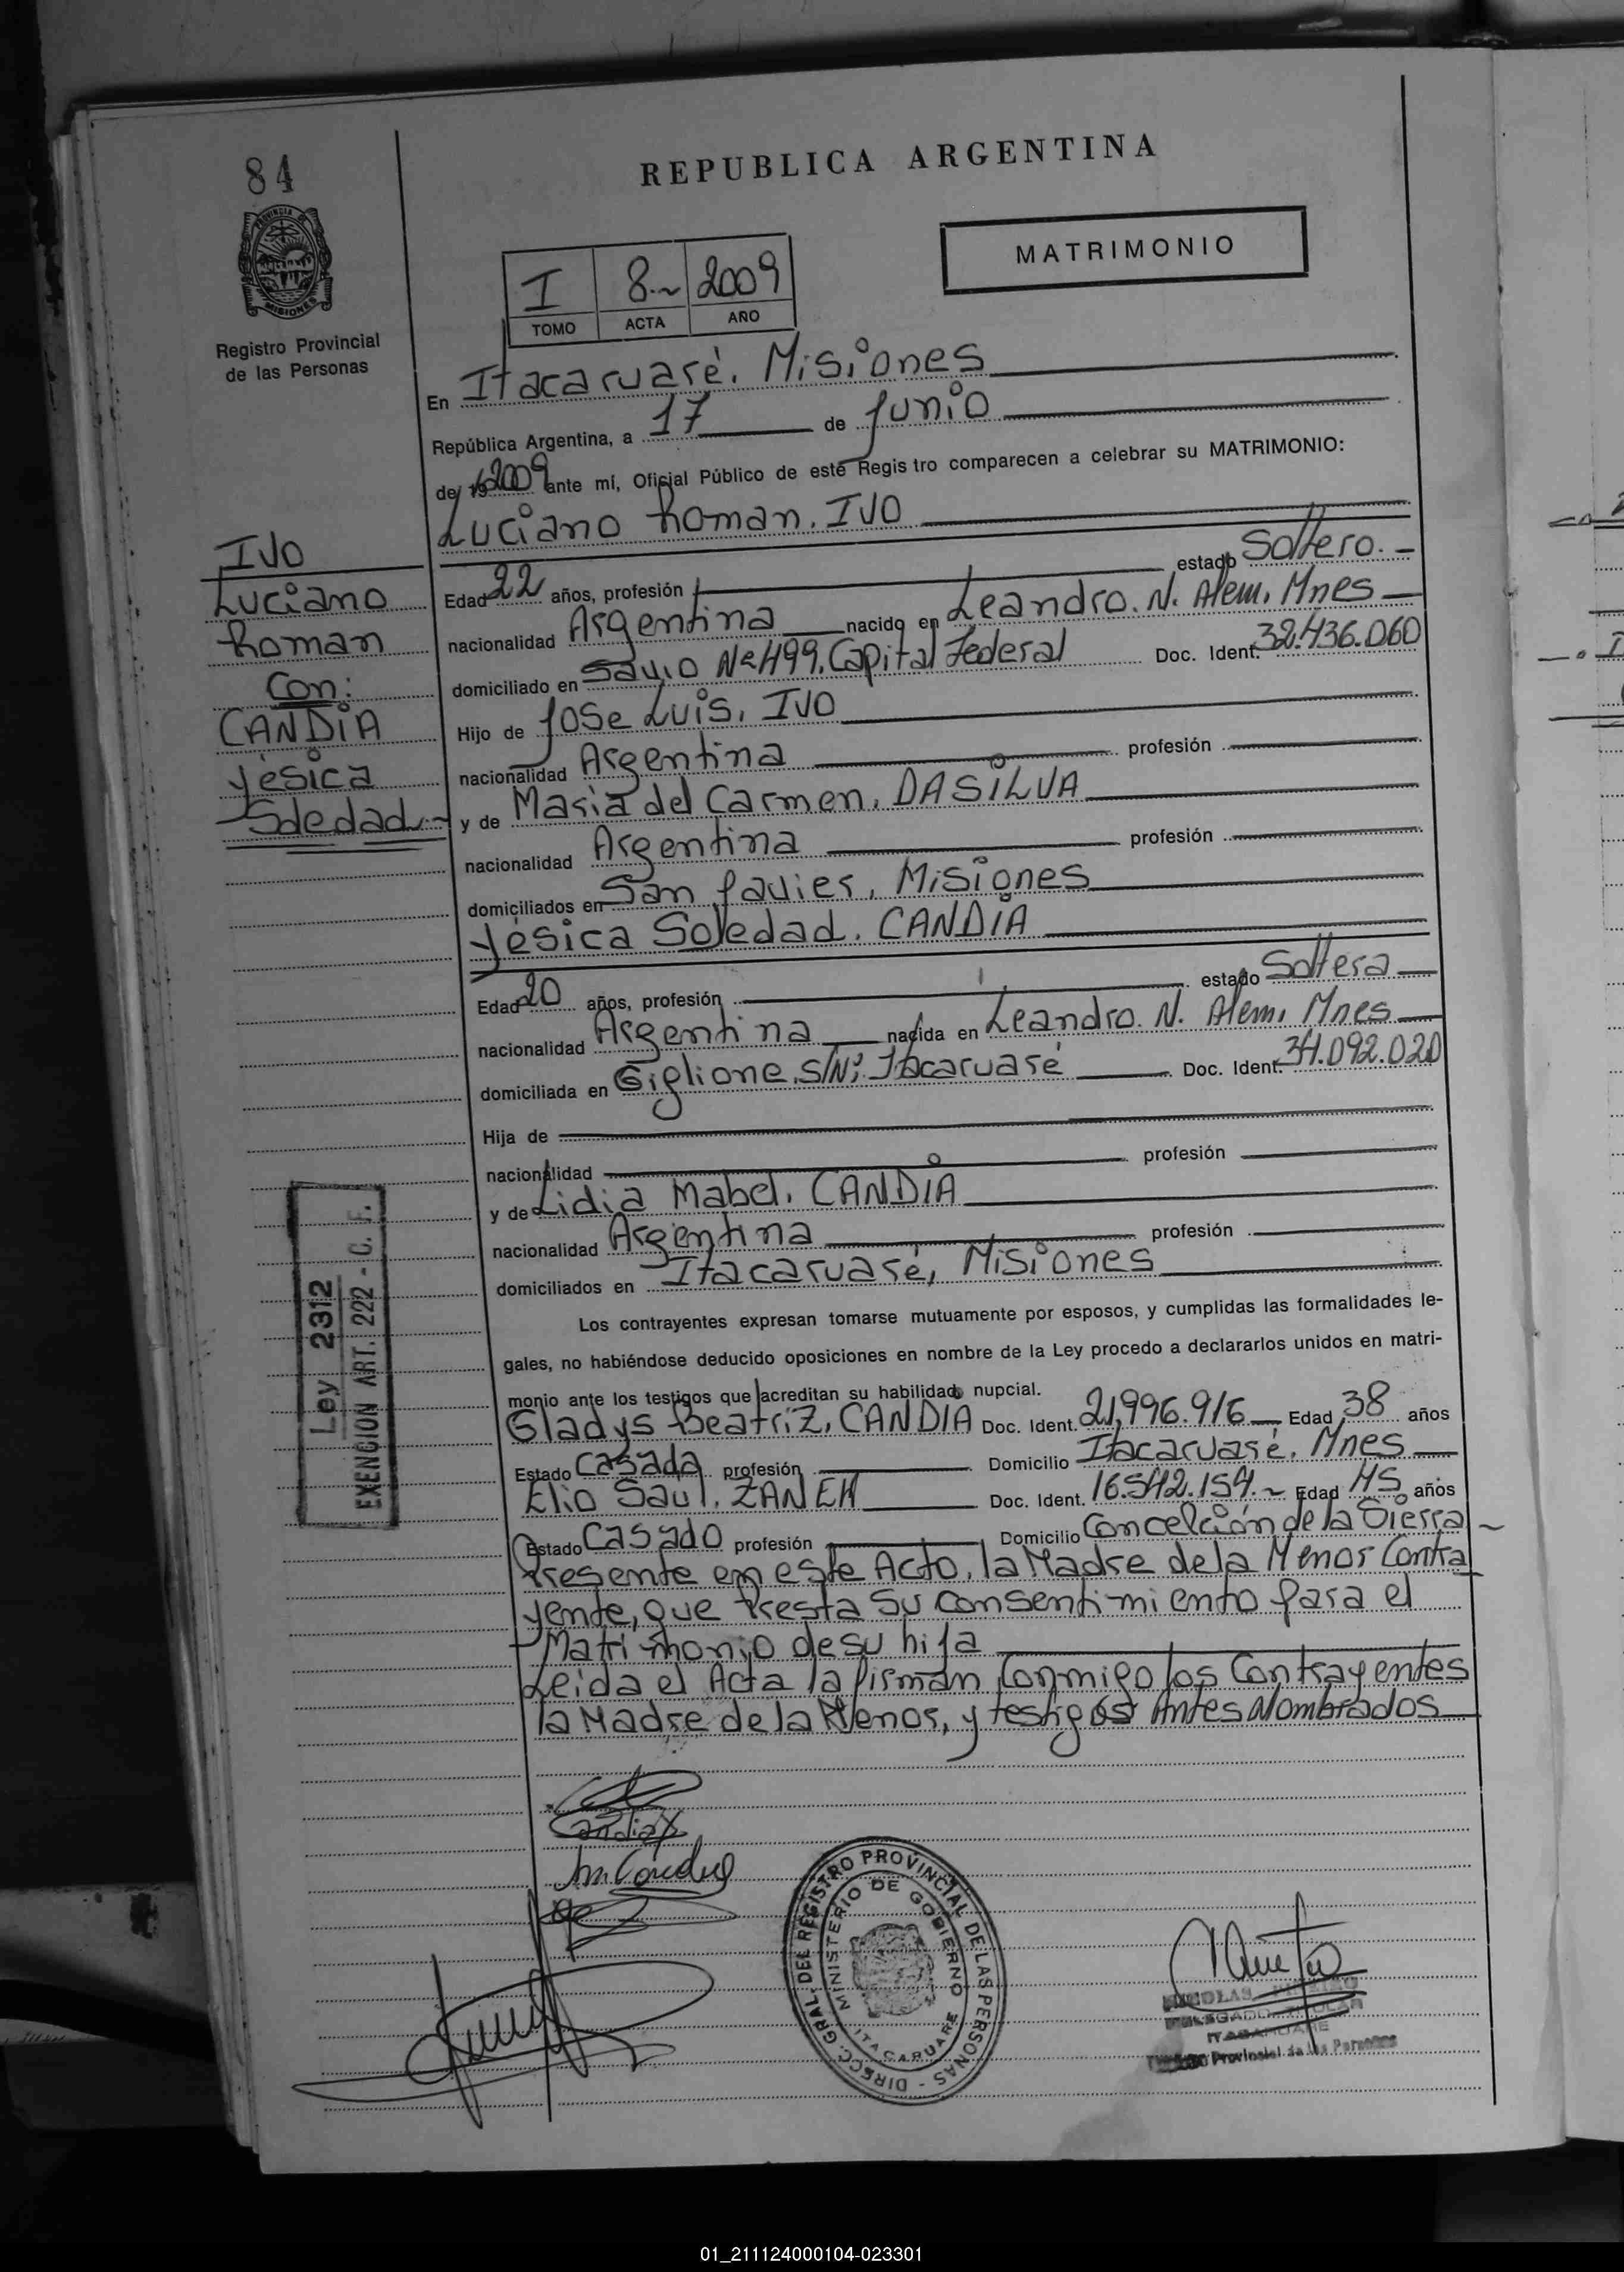 84
REPUBLICA ARGENTINA
MATRIMONIO
PROVINCIA DE
MISIONES
Registro Provincial
de las Personas
I 8.~ 2009
TOMO ACTA AÑO
En Itacaruaré. Misiones
República Argentina, a 17 de Junio
de 19 2009 ante mí, Oficial Público de este Registro comparecen a celebrar su MATRIMONIO:
Luciano Roman. IVO
IVO
Luciano
Roman
Con:
CANDIA
Yésica
Soledad.-
Edad 22 años, profesión estado Soltero.-
nacionalidad Argentina nacido en Leandro. N. Alem. Mnes
domiciliado en Savio Nº 499. Capital Federal Doc. Ident. 32.436.060
Hijo de Jose Luis. IVO
nacionalidad Argentina profesión
y de Maria del Carmen. DASILVA
nacionalidad Argentina profesión
domiciliados en San Javier, Misiones
Yésica Soledad. CANDIA
Edad 20 años, profesión estado Soltera
nacionalidad Argentina nacida en Leandro. N. Alem. Mnes
domiciliada en Giglione. S/Nº. Itacaruaré Doc. Ident. 34.092.020
Hija de
nacionalidad profesión
y de Lidia Mabel. CANDIA
nacionalidad Argentina profesión
domiciliados en Itacaruaré, Misiones
Los contrayentes expresan tomarse mutuamente por esposos, y cumplidas las formalidades le-
gales, no habiéndose deducido oposiciones en nombre de la Ley procedo a declararlos unidos en matri-
monio ante los testigos que acreditan su habilidad nupcial.
Gladys Beatriz, CANDIA Doc. Ident. 21,996.916 Edad 38 años
Estado Casada profesión Domicilio Itacaruaré. Mnes
Elio Saul. Doc. Ident. 16.542.154.~ Edad 45 años
Estado Casado profesión Domicilio Concelción de la Sierra
Presente en este Acto, la Madre de la Menor Contra
yente, que Presta Su consentimiento para el
Matrimonio de su hija
Leida el Acta la firman Conmigo los Contrayentes
la Madre de la Menor, y testigos Antes Nombrados
Ley 2312
EXENCION ART. 222 - C. F.
Candia
DIRECC. GRAL. DEL REGISTRO PROVINCIAL DE LAS PERSONAS -
MINISTERIO DE GOBIERNO
ITACARUARE
DELEGADO TITULAR
ITACARUARE
Provincial de las Personas
01_211124000104-023301